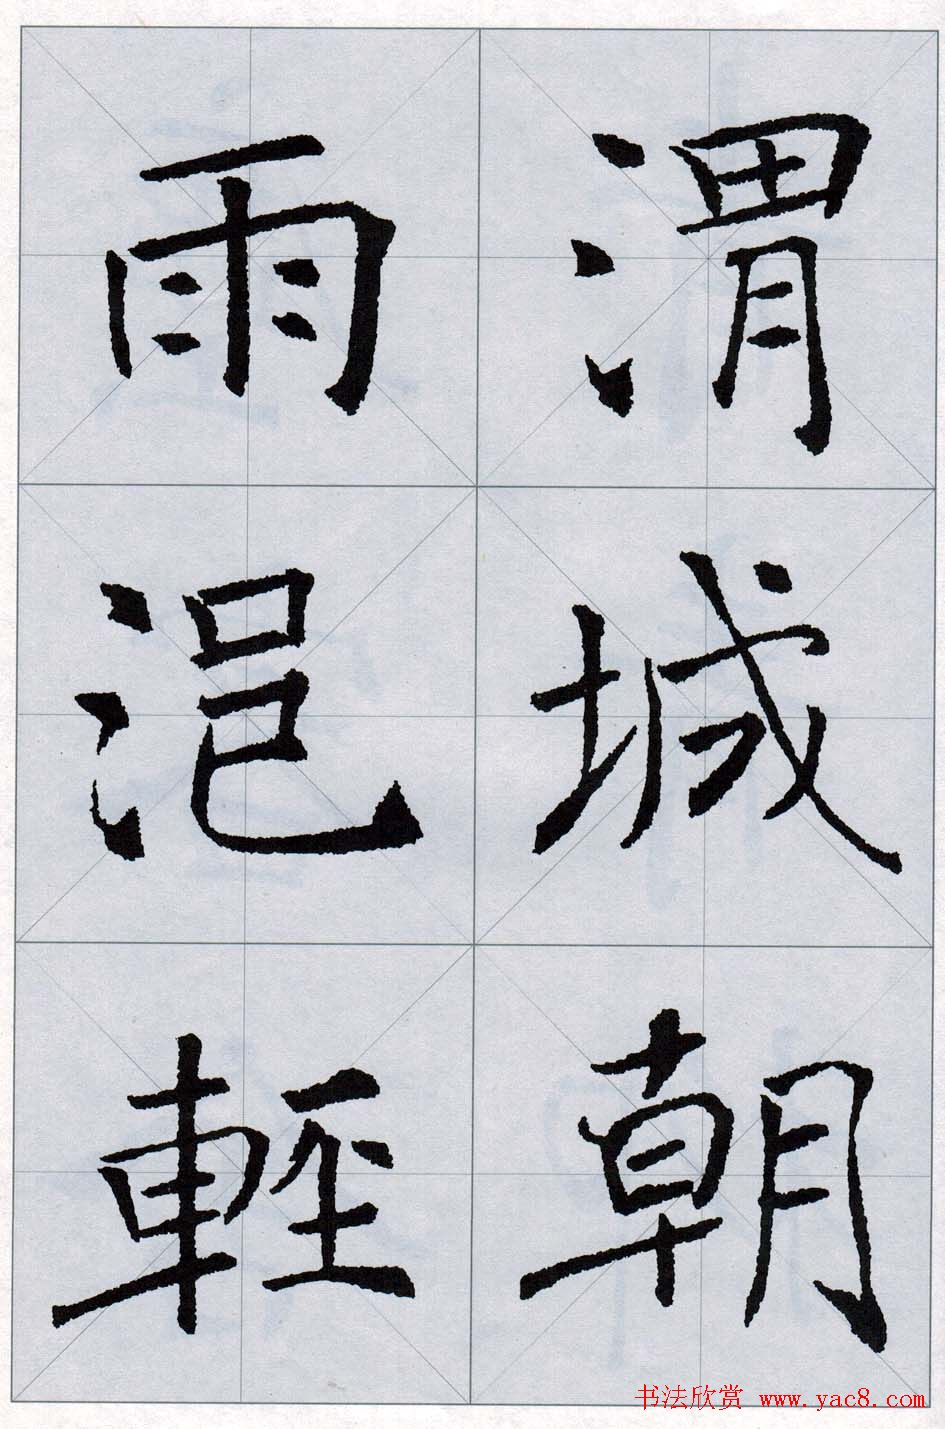 渭城朝
雨浥輕
书法欣赏 www.yac8.com